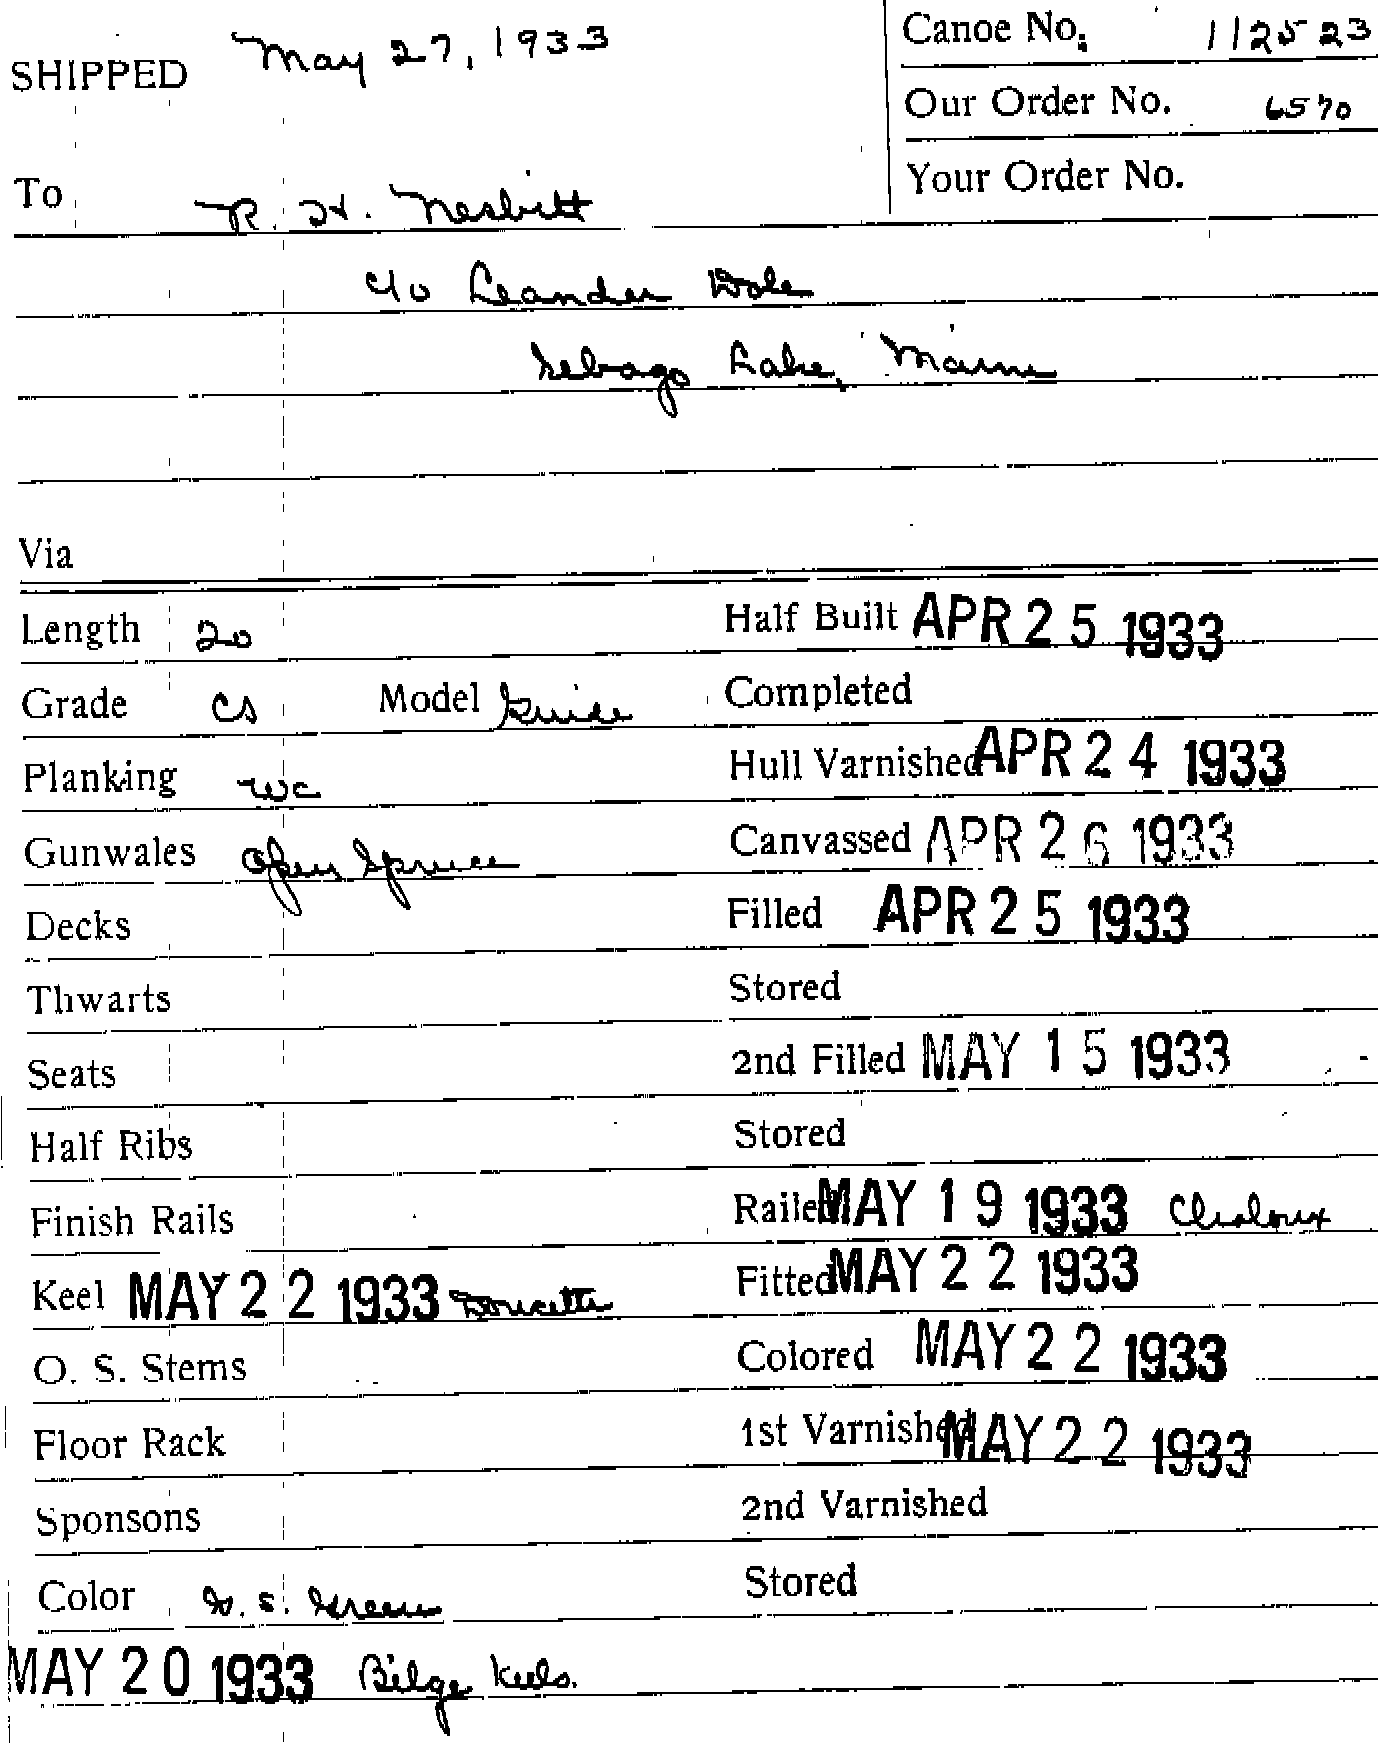 SHIPPED May 27, 1933
Canoe No. 112523
Our Order No. 6570
Your Order No.
To R. H. Nesbitt
c/o Leander Dole
Sebago Lake, Maine
Via
Length 20 Half Built APR 25 1933
Grade CS Model Guide Completed
Planking WC Hull Varnished APR 24 1933
Gunwales Open Spruce Canvassed APR 26 1933
Decks Filled APR 25 1933
Thwarts Stored
Seats 2nd Filled MAY 15 1933
Half Ribs Stored
Finish Rails Railed MAY 19 1933 Chaloux
Keel MAY 22 1933 Doucette Fitted MAY 22 1933
O. S. Stems Colored MAY 22 1933
Floor Rack 1st Varnished MAY 22 1933
Sponsons 2nd Varnished
Color Green Stored
MAY 20 1933 Bilge Keels.